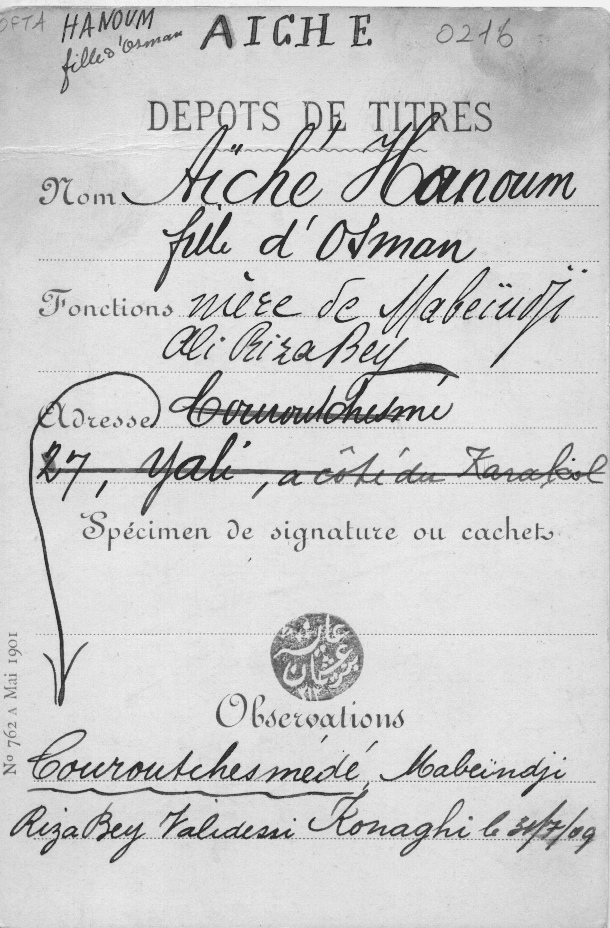 OFTA HANOUM AICHE 0216
fille d'Osman
DEPOTS DE TITRES
Nom Aïché Hanoum
fille d'Osman
Fonctions mère de Mabeïndji
Ali Riza Bey
Adresse Couroutchesmé
27, Yali, a côté du Karakol
Spécimen de signature ou cachet
Observations
Couroutchesmédé, Mabeïndji
Riza Bey Validessi Konaghi le 31/7/09
No 762 A Mai 1901